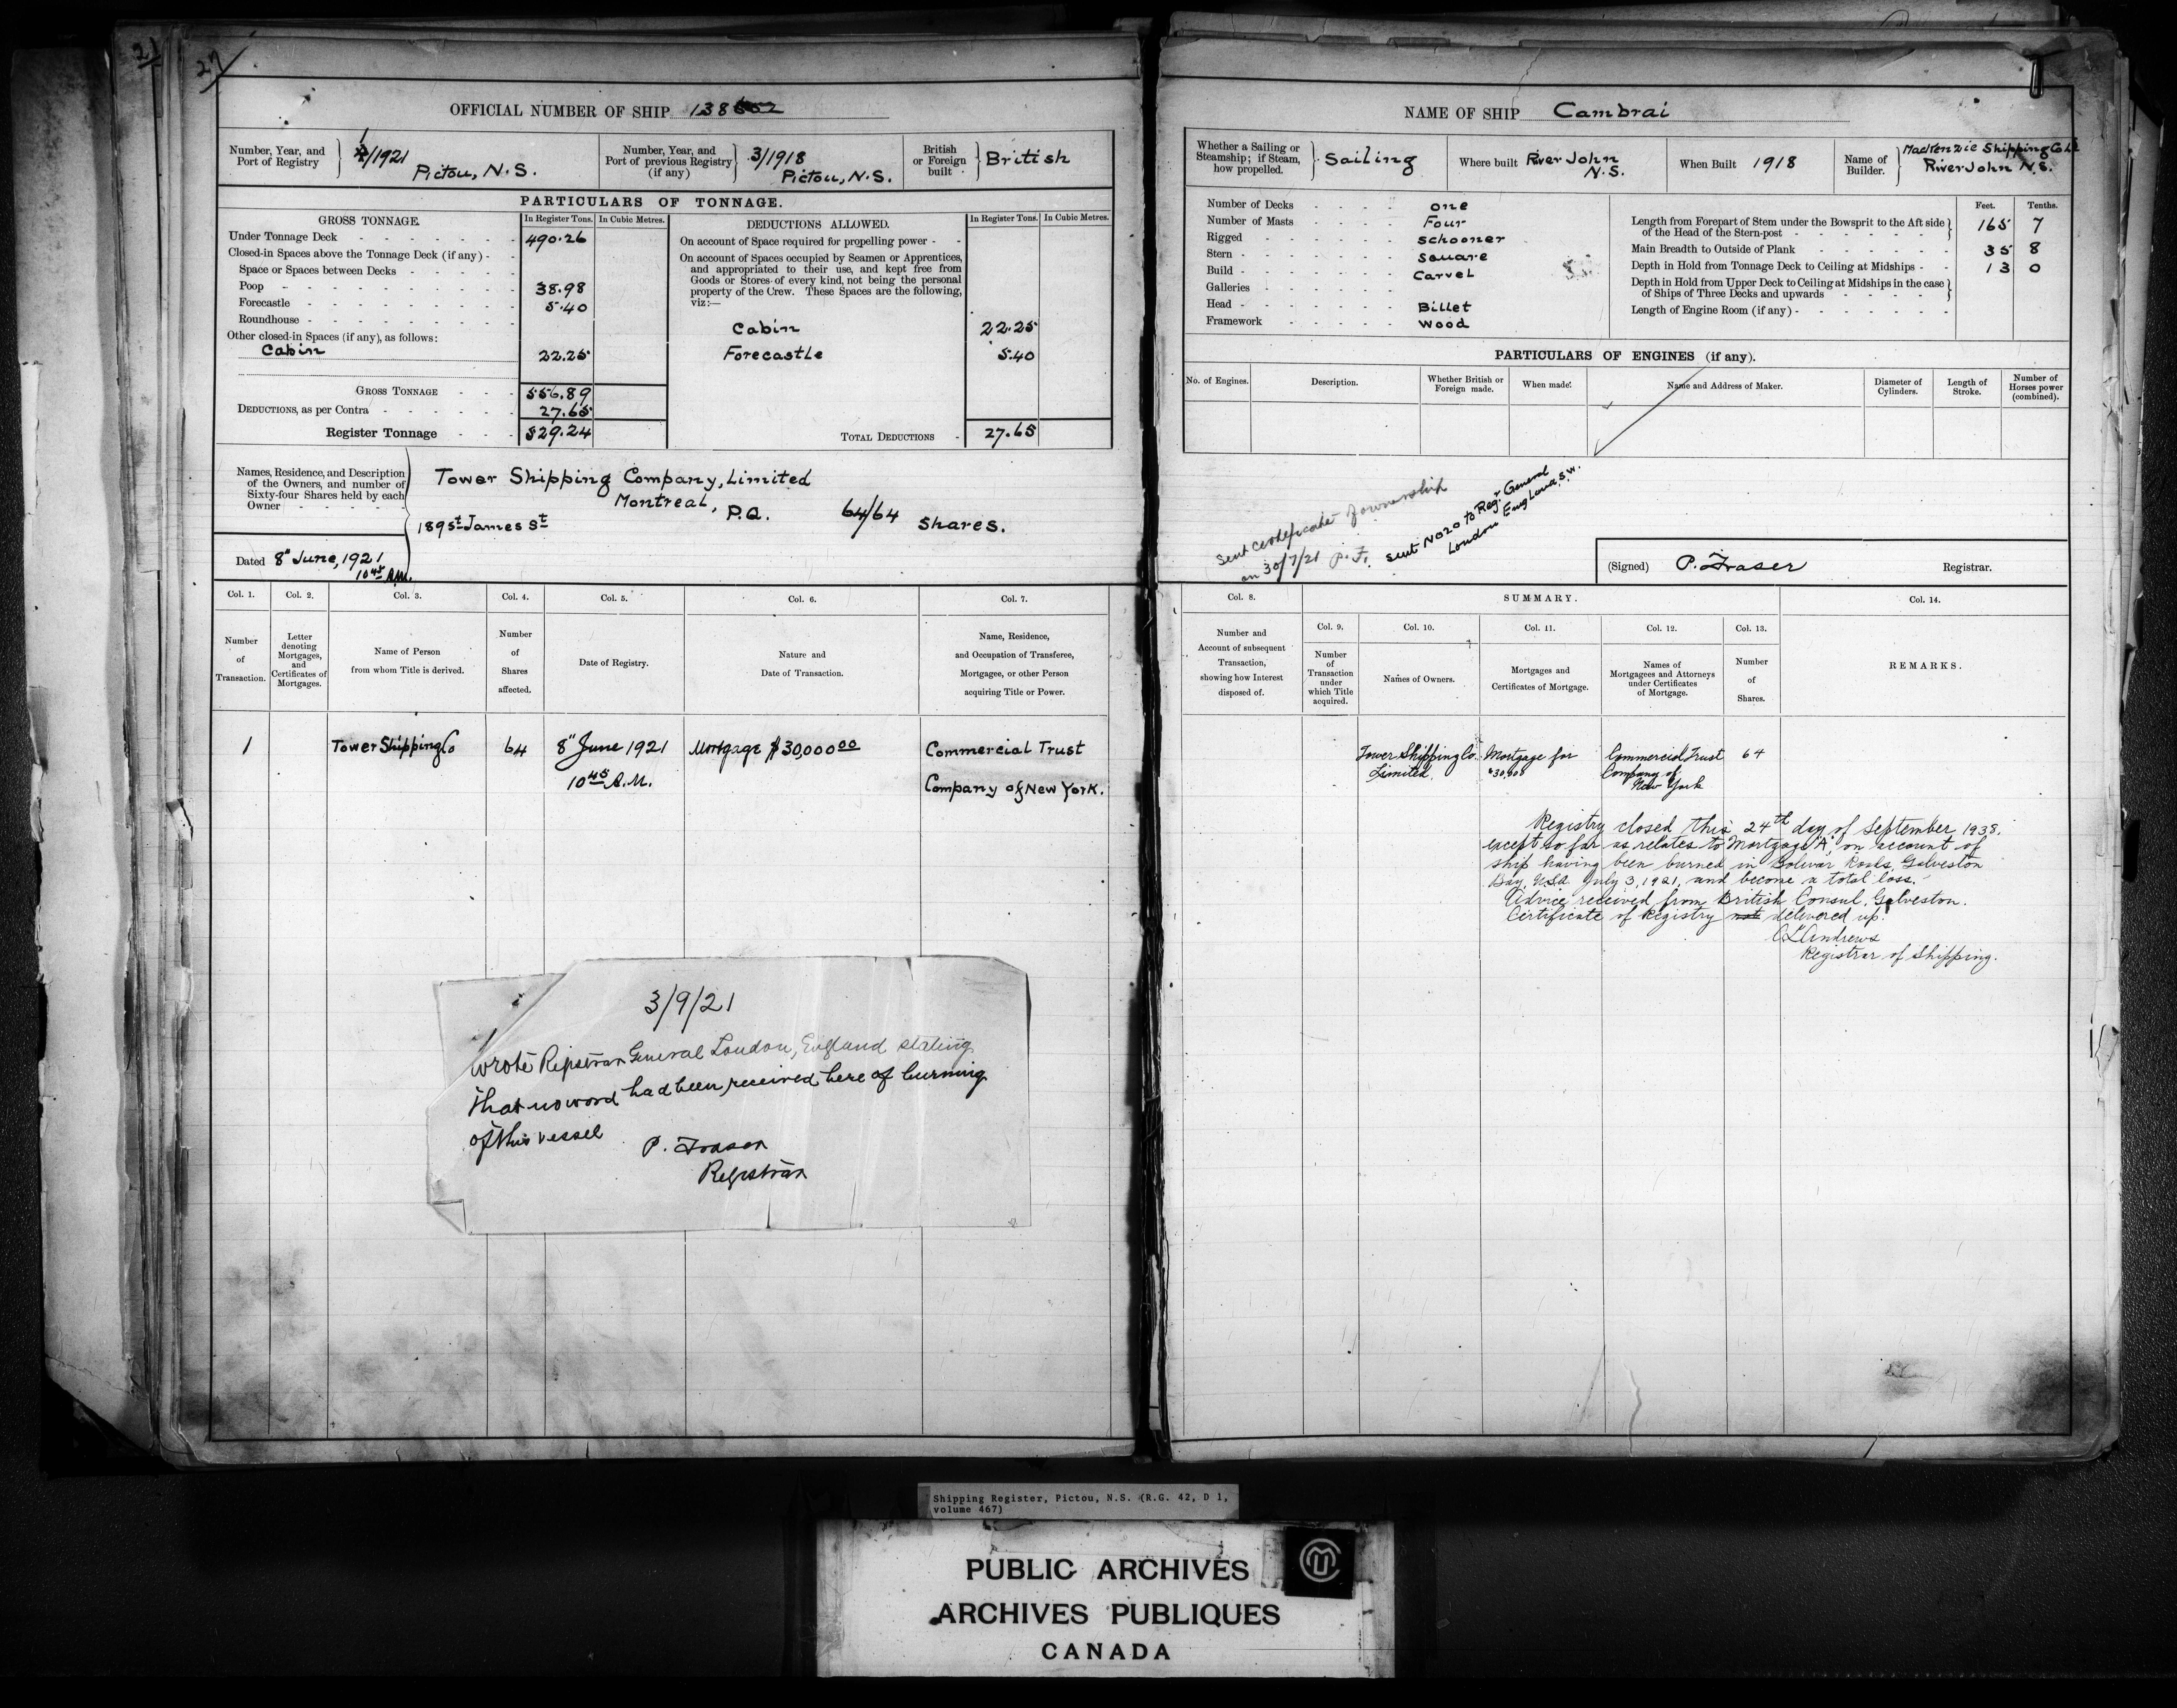 27
OFFICIAL NUMBER OF SHIP 138
Number, Year, and Port of Registry
1/1921
Pictou, N.S.
Number, Year, and Port of previous Registry (if any)
3/1918
Pictou, N.S.
British or Foreign built
British
PARTICULARS OF TONNAGE.
GROSS TONNAGE. In Register Tons. In Cubic Metres.
Under Tonnage Deck 490.26
Closed-in Spaces above the Tonnage Deck (if any)
Space or Spaces between Decks
Poop 38.98
Forecastle 5.40
Roundhouse
Other closed-in Spaces (if any), as follows:
Cabin 22.25
GROSS TONNAGE 556.89
DEDUCTIONS, as per Contra 27.65
Register Tonnage 529.24
DEDUCTIONS ALLOWED. In Register Tons. In Cubic Metres.
On account of Space required for propelling power
On account of Spaces occupied by Seamen or Apprentices,
and appropriated to their use, and kept free from
Goods or Stores of every kind, not being the personal
property of the Crew. These Spaces are the following,
viz:—
Cabin 22.25
Forecastle 5.40
TOTAL DEDUCTIONS 27.65
Names, Residence, and Description
of the Owners, and number of
Sixty-four Shares held by each
Owner
Tower Shipping Company, Limited
Montreal, P.Q. 64/64 Shares.
189 St James St
Dated 8" June, 1921
10 45 A.M.
Col. 1. Col. 2. Col. 3. Col. 4. Col. 5. Col. 6. Col. 7.
Number of Transaction.
Letter denoting Mortgages, and Certificates of Mortgages.
Name of Person from whom Title is derived.
Number of Shares affected.
Date of Registry.
Nature and Date of Transaction.
Name, Residence, and Occupation of Transferee, Mortgagee, or other Person acquiring Title or Power.
1 Tower Shipping Co 64 8" June 1921 Mortgage $30,000 00 Commercial Trust
10 45 A.M. Company of New York.
3/9/21
Wrote Registrar General London, England stating
that no word had been received here of burning
of this vessel
P. Fraser
Registrar
NAME OF SHIP Cambrai
Whether a Sailing or Steamship; if Steam, how propelled.
Sailing
Where built River John N.S.
When Built 1918
Name of Builder.
MacKenzie Shipping Co Ld
River John N.S.
Number of Decks one
Number of Masts Four
Rigged Schooner
Stern Square
Build Carvel
Galleries
Head Billet
Framework Wood
Feet. Tenths.
Length from Forepart of Stem under the Bowsprit to the Aft side
of the Head of the Stern-post 165 7
Main Breadth to Outside of Plank 35 8
Depth in Hold from Tonnage Deck to Ceiling at Midships 13 0
Depth in Hold from Upper Deck to Ceiling at Midships in the case
of Ships of Three Decks and upwards
Length of Engine Room (if any)
PARTICULARS OF ENGINES (if any).
No. of Engines. Description. Whether British or Foreign made. When made. Name and Address of Maker. Diameter of Cylinders. Length of Stroke. Number of Horses power (combined).
Sent certificate of ownership
on 30/7/21 P.F.
Sent No 20 to Regr General
London England, S.W.
(Signed) P. Fraser Registrar.
Col. 8. SUMMARY. Col. 14.
Col. 9. Col. 10. Col. 11. Col. 12. Col. 13.
Number and Account of subsequent Transaction, showing how Interest disposed of.
Number of Transaction under which Title acquired.
Names of Owners.
Mortgages and Certificates of Mortgage.
Names of Mortgagees and Attorneys under Certificates of Mortgage.
Number of Shares.
REMARKS.
Tower Shipping Co. Mortgage for Commercial Trust 64
Limited. Company of
New York
Registry closed this 24th day of September 1938,
except so far as relates to Mortgage "A", on account of
ship having been burned in Bolivar Roads, Galveston
Bay, U.S.A. July 3, 1921, and become a total loss.
Advice received from British Consul, Galveston.
Certificate of Registry not delivered up.
Andrews
Registrar of Shipping.
Shipping Register, Pictou, N.S. (R.G. 42, D 1,
volume 467)
PUBLIC ARCHIVES
ARCHIVES PUBLIQUES
CANADA